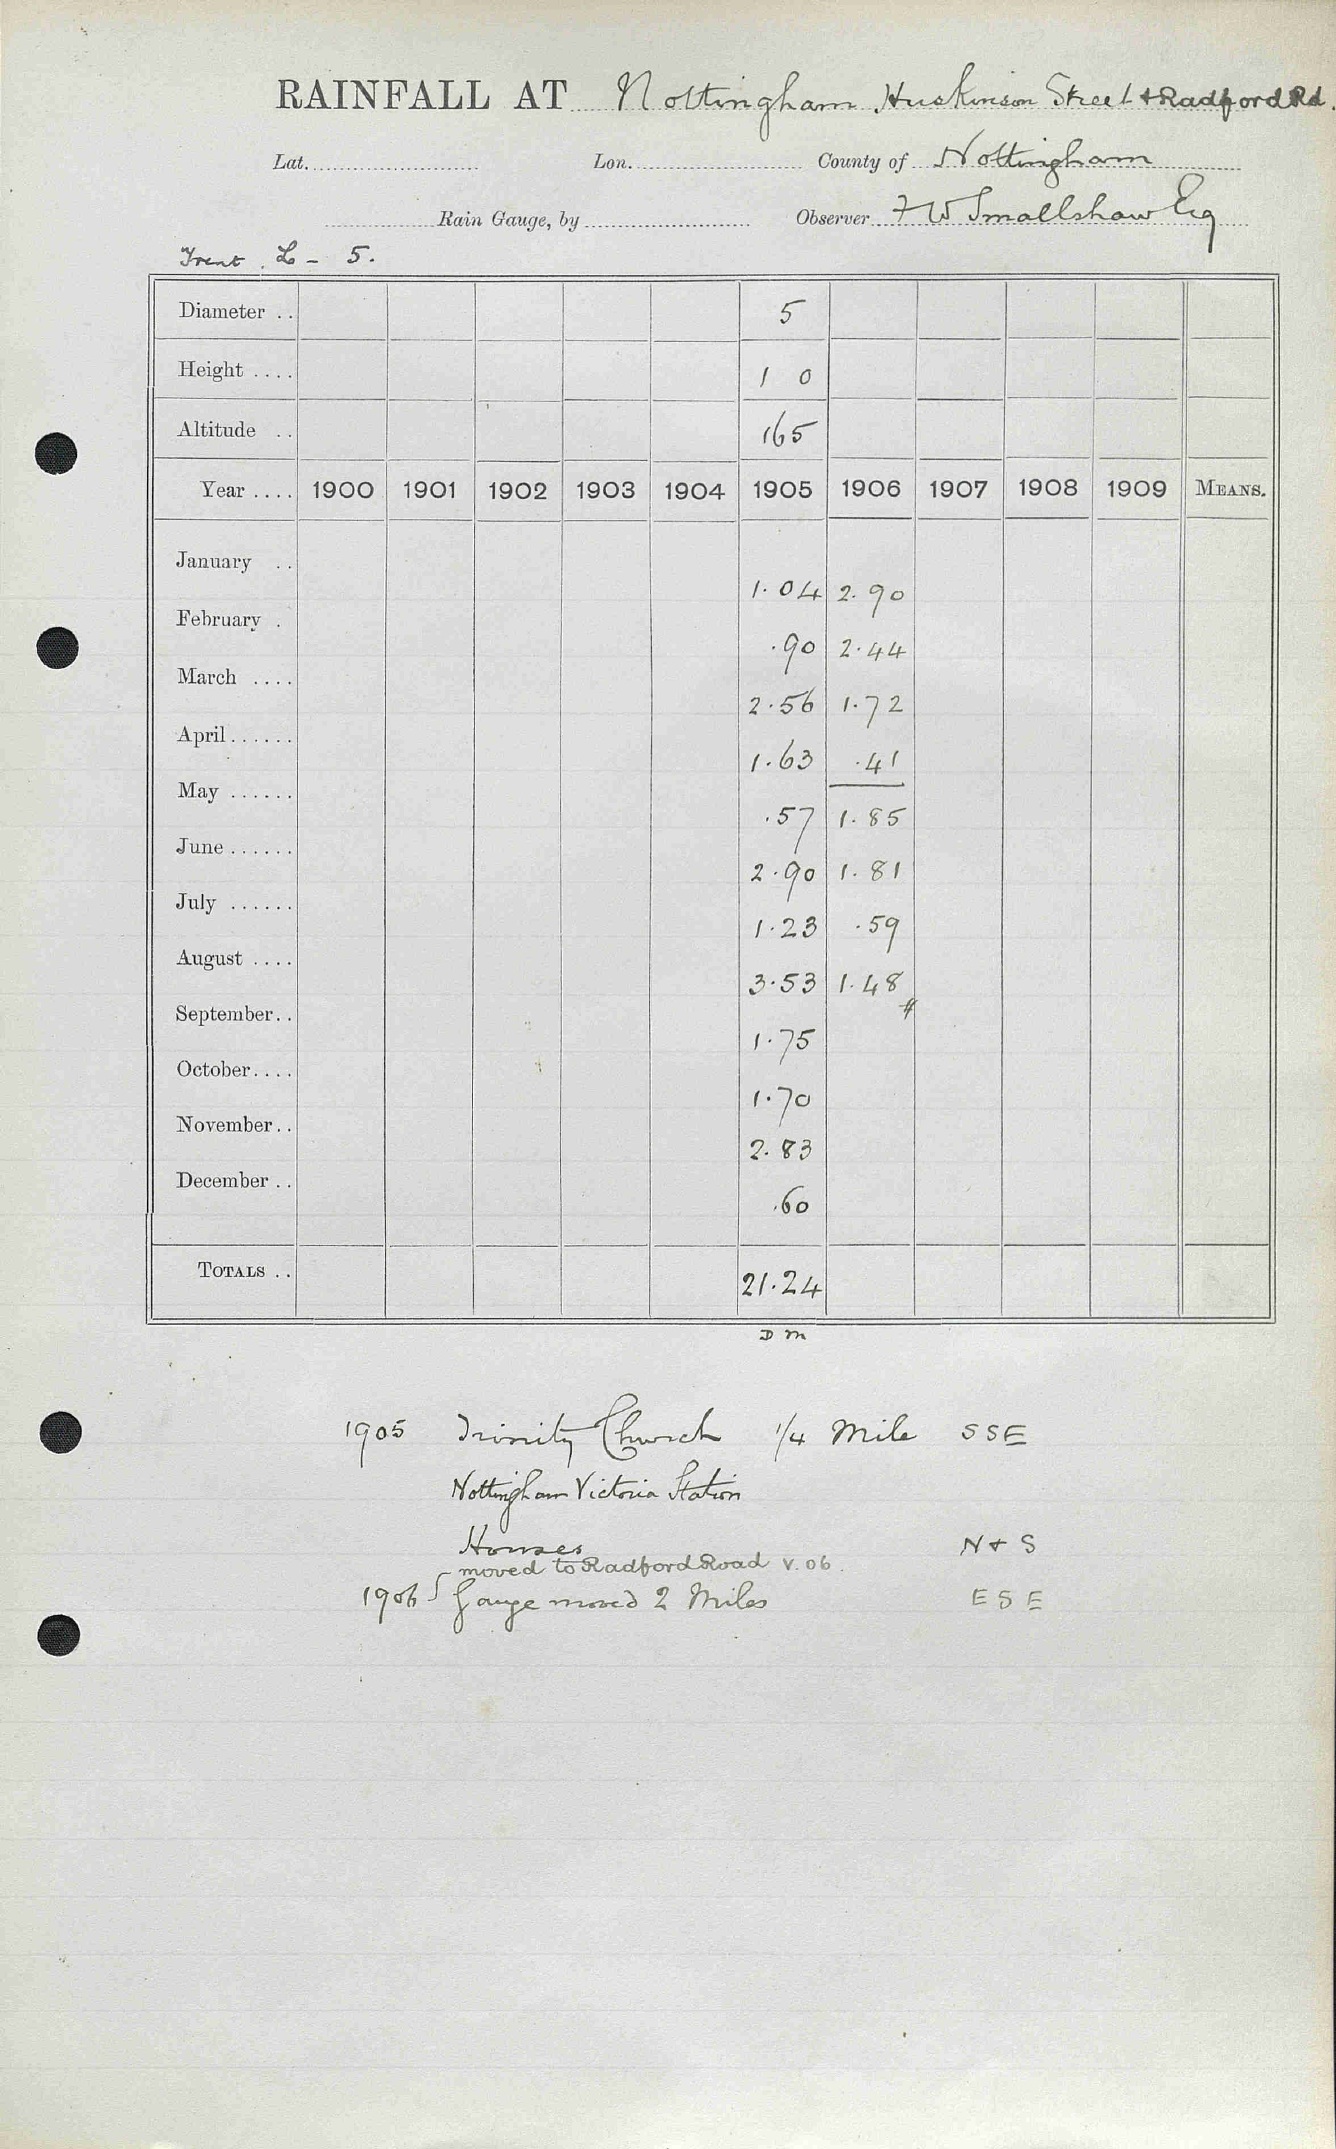 RAINFALL AT Nottingham Huskinson Street & Radford Rd.
Lat. Lon. County of Nottingham
Rain Gauge, by Observer F W Smallshaw Esq
Trent L - 5.
Diameter .. 5
Height .... 1 0
Altitude .. 165
Year .... 1900 1901 1902 1903 1904 1905 1906 1907 1908 1909 MEANS.
January .. 1.04 2.90
February . .90 2.44
March .... 2.56 1.72
April...... 1.63 .41
May ...... .57 1.85
June ...... 2.90 1.81
July ...... 1.23 .59
August .... 3.53 1.48 #
September.. 1.75
October.... 1.70
November.. 2.83
December .. .60
TOTALS .. 21.24
D M
1905 Trinity Church 1/4 Mile SSE
Nottingham Victoria Station
Houses N & S
moved to Radford Road V.06.
1906 { Gauge moved 2 Miles ESE